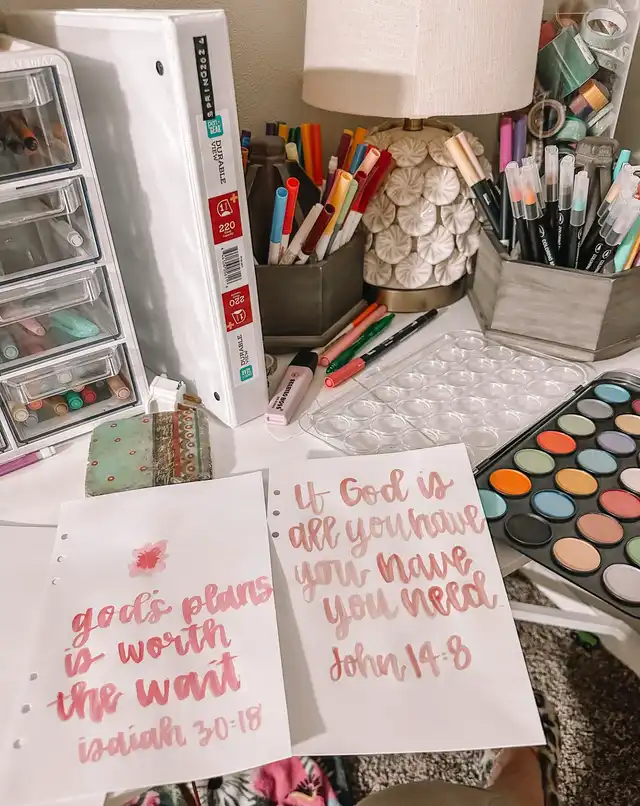 DURABLE
VIEW
1"
220
god's plans
is worth
the wait
isaiah 30:18
If God is
all you have
you have
you need
John 14:8